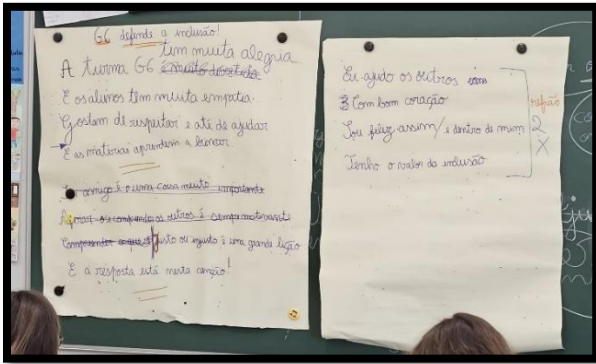 G6 defende a inclusão!
tem muita alegria
A turma G6 é muito divertida
E os alunos têm muita empatia.
Gostam de respeitar e até de ajudar
E as matérias aprendem a brincar.
Ser amigo é uma coisa muito importante
Apoiar os outros é sempre motivante
Compreender justo ou injusto é uma grande lição
E a resposta está nesta canção!
Eu ajudo os outros com
Com bom coração
Sou feliz assim/ e dentro de mim
Tenho o valor da inclusão
refrão
2
X